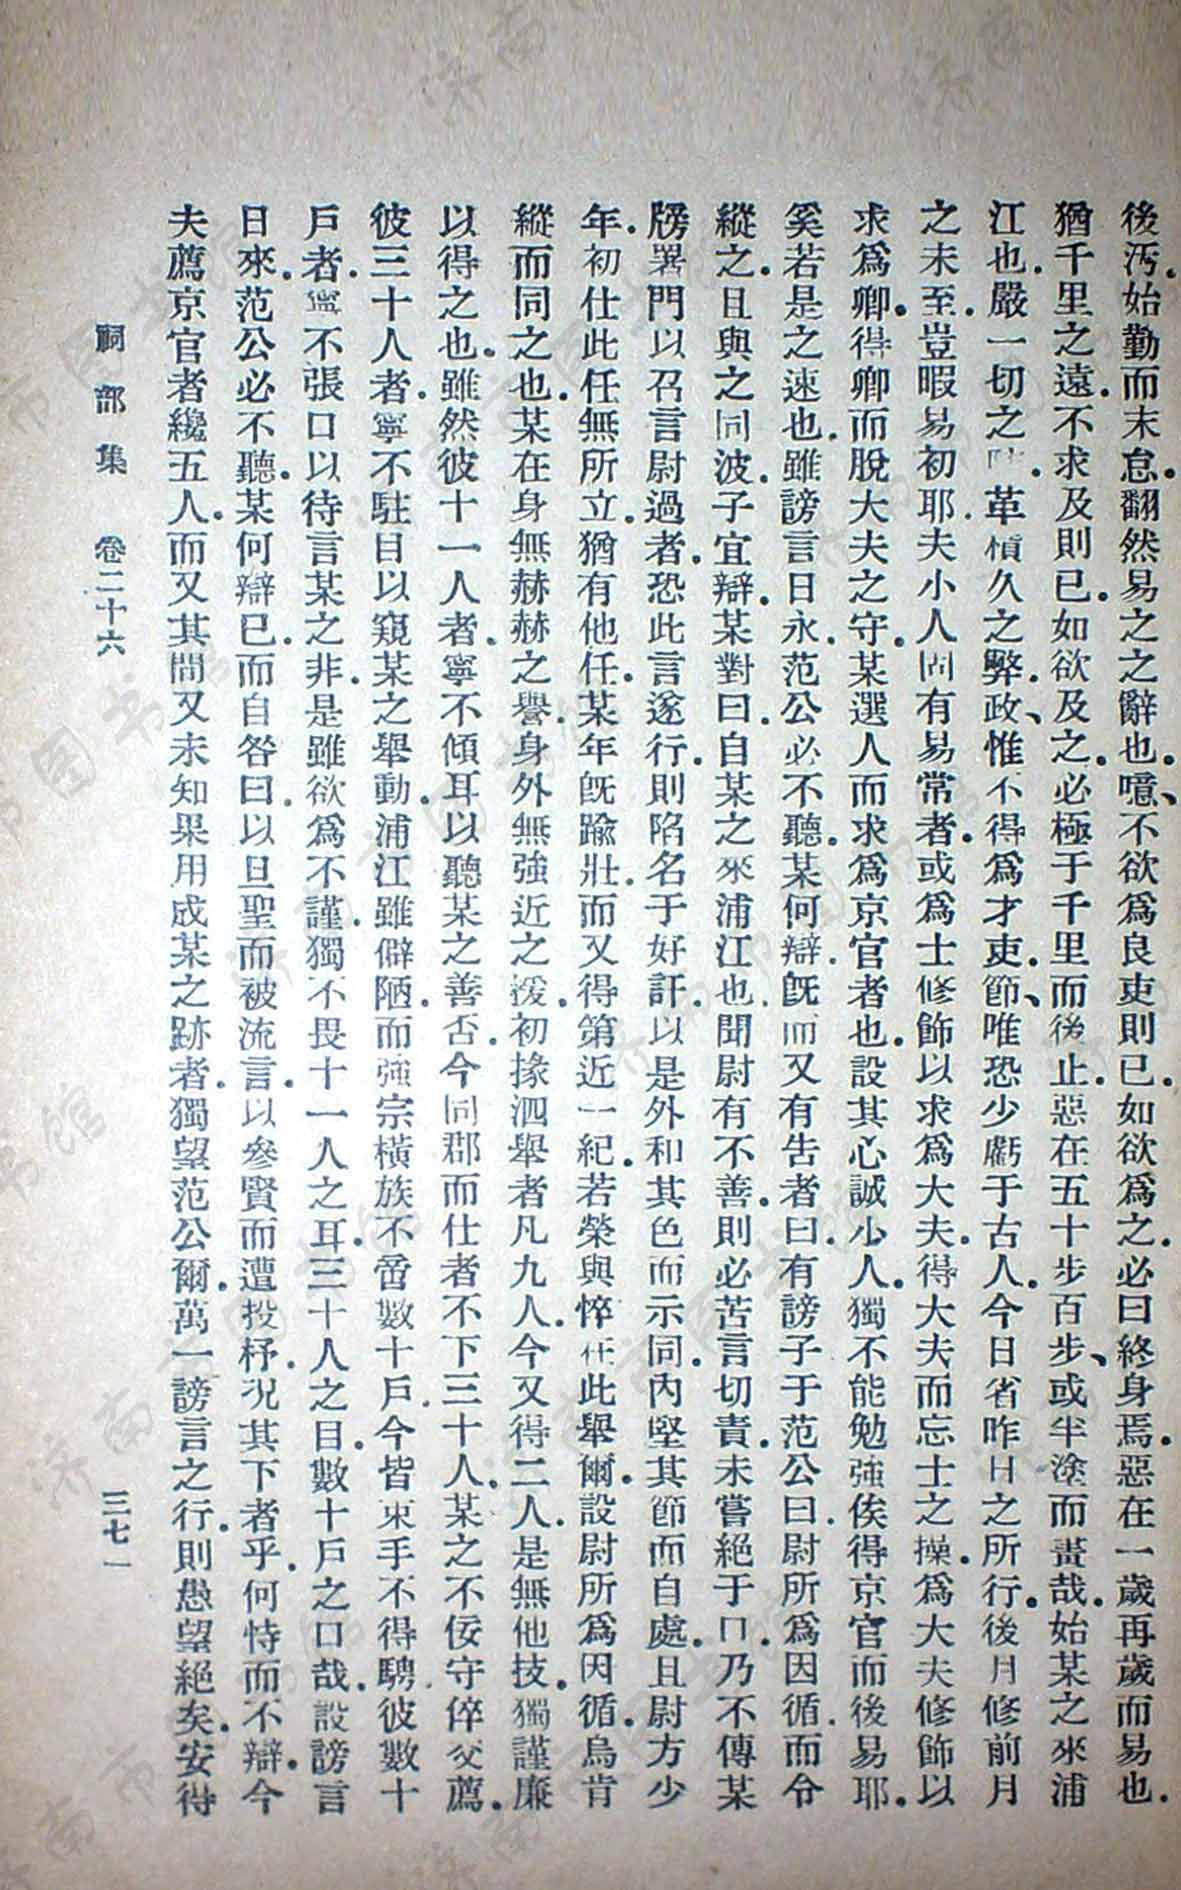 後汚.始勤而末怠.翻然易之之辭也.噫、不欲爲良吏則已.如欲爲之.必曰終身焉.惡在一歲再歲而易也.
猶千里之遠.不求及則已.如欲及之.必極于千里而後止.惡在五十步百步、或半塗而畫哉.始某之來浦
江也.嚴一切之.革積久之弊政、惟不得爲才吏.節、唯恐少虧于古人.今日省昨日之所行.後月修前月
之未至.豈暇易初耶.夫小人固有易常者.或爲士修飾以求爲大夫.得大夫而忘士之操.爲大夫修飾以
求爲卿.得卿而脫大夫之守.某選人而求爲京官者也.設其心誠小人.獨不能勉強俟得京官而後易耶.
奚若是之速也.雖謗言日永.范公必不聽.某何辯.旣而又有告者曰.有謗子于范公曰.尉所爲因循.而令
縱之.且與之同波.子宜辯.某對曰.自某之來浦江也.聞尉有不善.則必苦言切責.未嘗絕于口.乃不傳某
牓署門以召言尉過者.恐此言遂行.則陷名于好訐.以是外和其色而示同.內堅其節而自處.且尉方少
年.初仕此任無所立.猶有他任.某年旣踰壯.而又得第近一紀.若榮與悴在此舉爾.設尉所爲因循.烏肯
縱而同之也.某在身無赫赫之譽.身外無強近之援.初掾泗舉者凡九人.今又得二人.是無他技.獨謹廉
以得之也.雖然彼十一人者.寧不傾耳以聽某之善否.今同郡而仕者不下三十人.某之不佞.守倅交薦.
彼三十人者.寧不駐目以窺某之舉動.浦江雖僻陋.而強宗橫族不啻數十戶.今皆束手不得騁.彼數十
戶者.寧不張口以待言某之非.是雖欲爲不謹.獨不畏十一人之耳.三十人之目.數十戶之口哉.設謗言
日來.范公必不聽.某何辯.已而自咎曰.以旦聖而被流言.以參賢而遭投杼.況其下者乎.何恃而不辯.今
夫薦京官者纔五人.而又其間又未知果用成某之跡者.獨望范公爾.萬一謗言之行.則愚望絕矣.安得
嗣部集 卷二十六 三七一
济南市图书馆